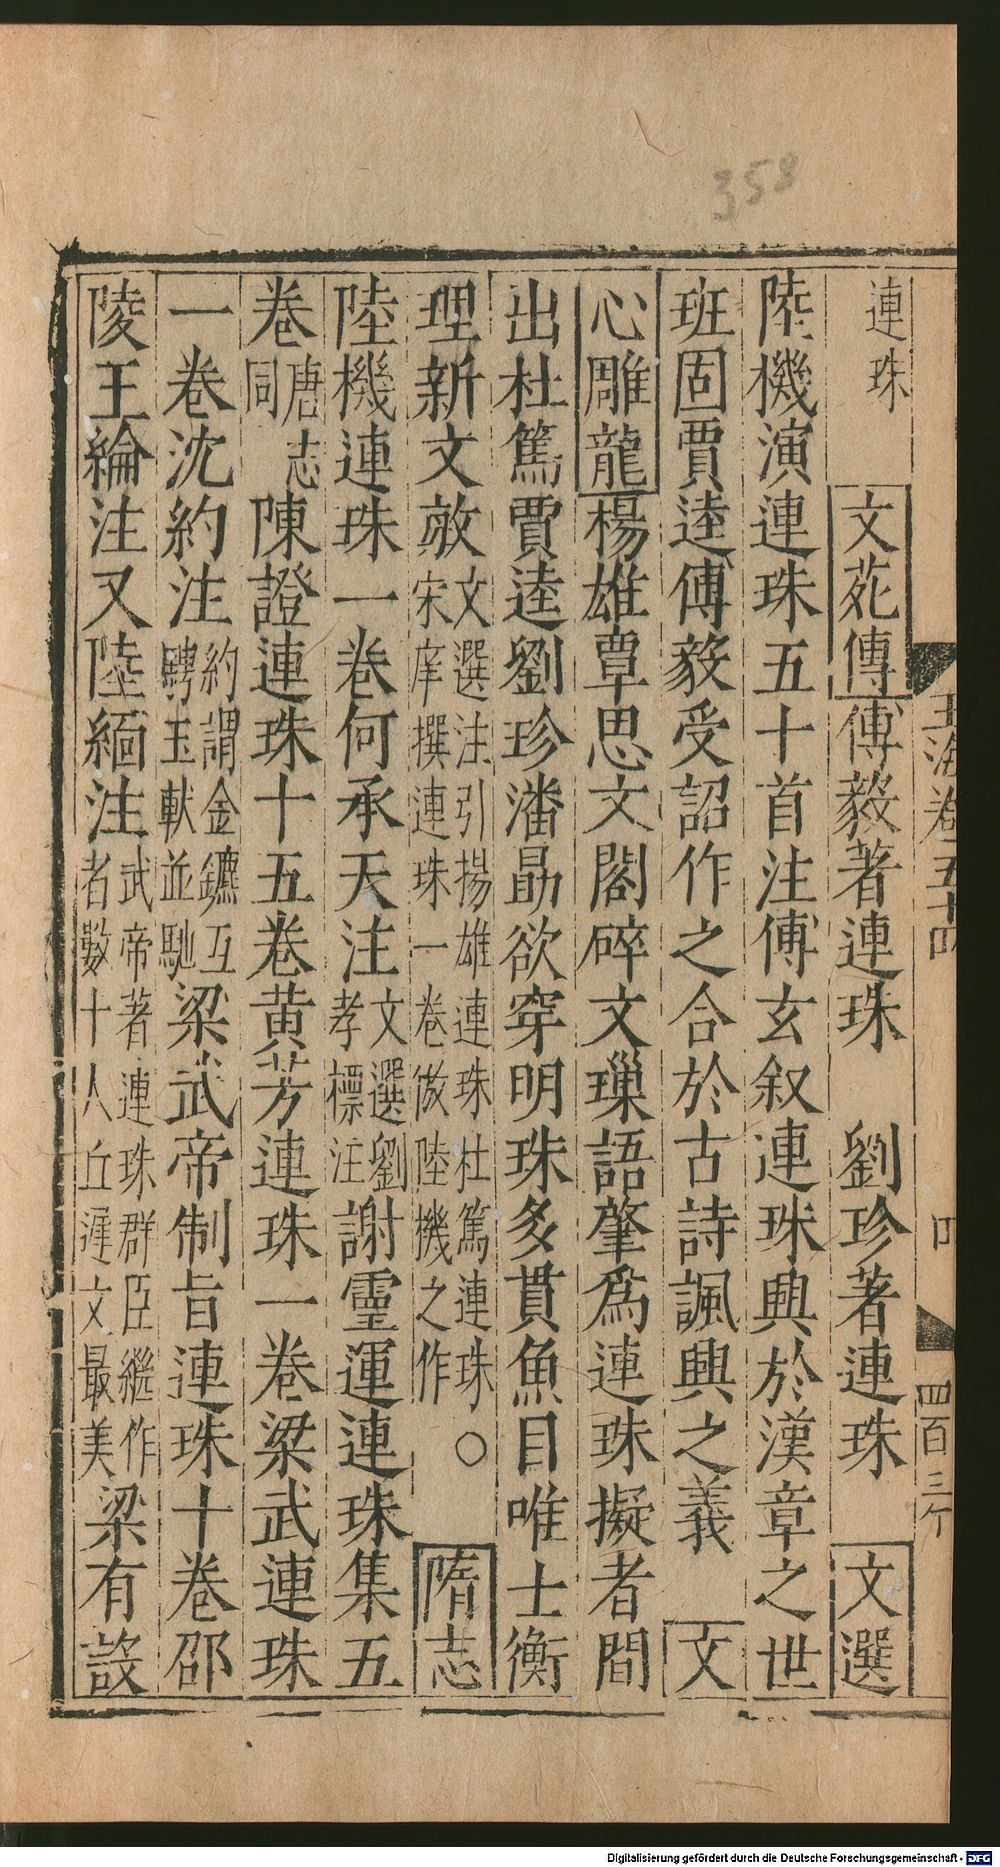 358
玉海卷五十四
四
四百三个
連珠
文苑傳傅毅著連珠　劉珍著連珠　文選
陸機演連珠五十首注傅玄叙連珠興於漢章之世
班固賈逵傅毅受詔作之合於古詩諷興之義　文
心雕龍楊雄覃思文閣碎文璅語肇為連珠擬者間
出杜篤賈逵劉珍潘勗欲穿明珠多貫魚目唯士衡
理新文敵文選注引揚雄連珠杜篤連珠○宋庠撰連珠一卷倣陸機之作　隋志
陸機連珠一卷何承天注文選劉孝標注謝靈運連珠集五
卷唐志同陳證連珠十五卷黃芳連珠一卷梁武連珠
一卷沈約注約謂金鑣互騁玉軑並馳梁武帝制旨連珠十卷邵
陵王綸注又陸緬注武帝著連珠群臣繼作者數十人丘遲文最美梁有設
Digitalisierung gefördert durch die Deutsche Forschungsgemeinschaft - DFG